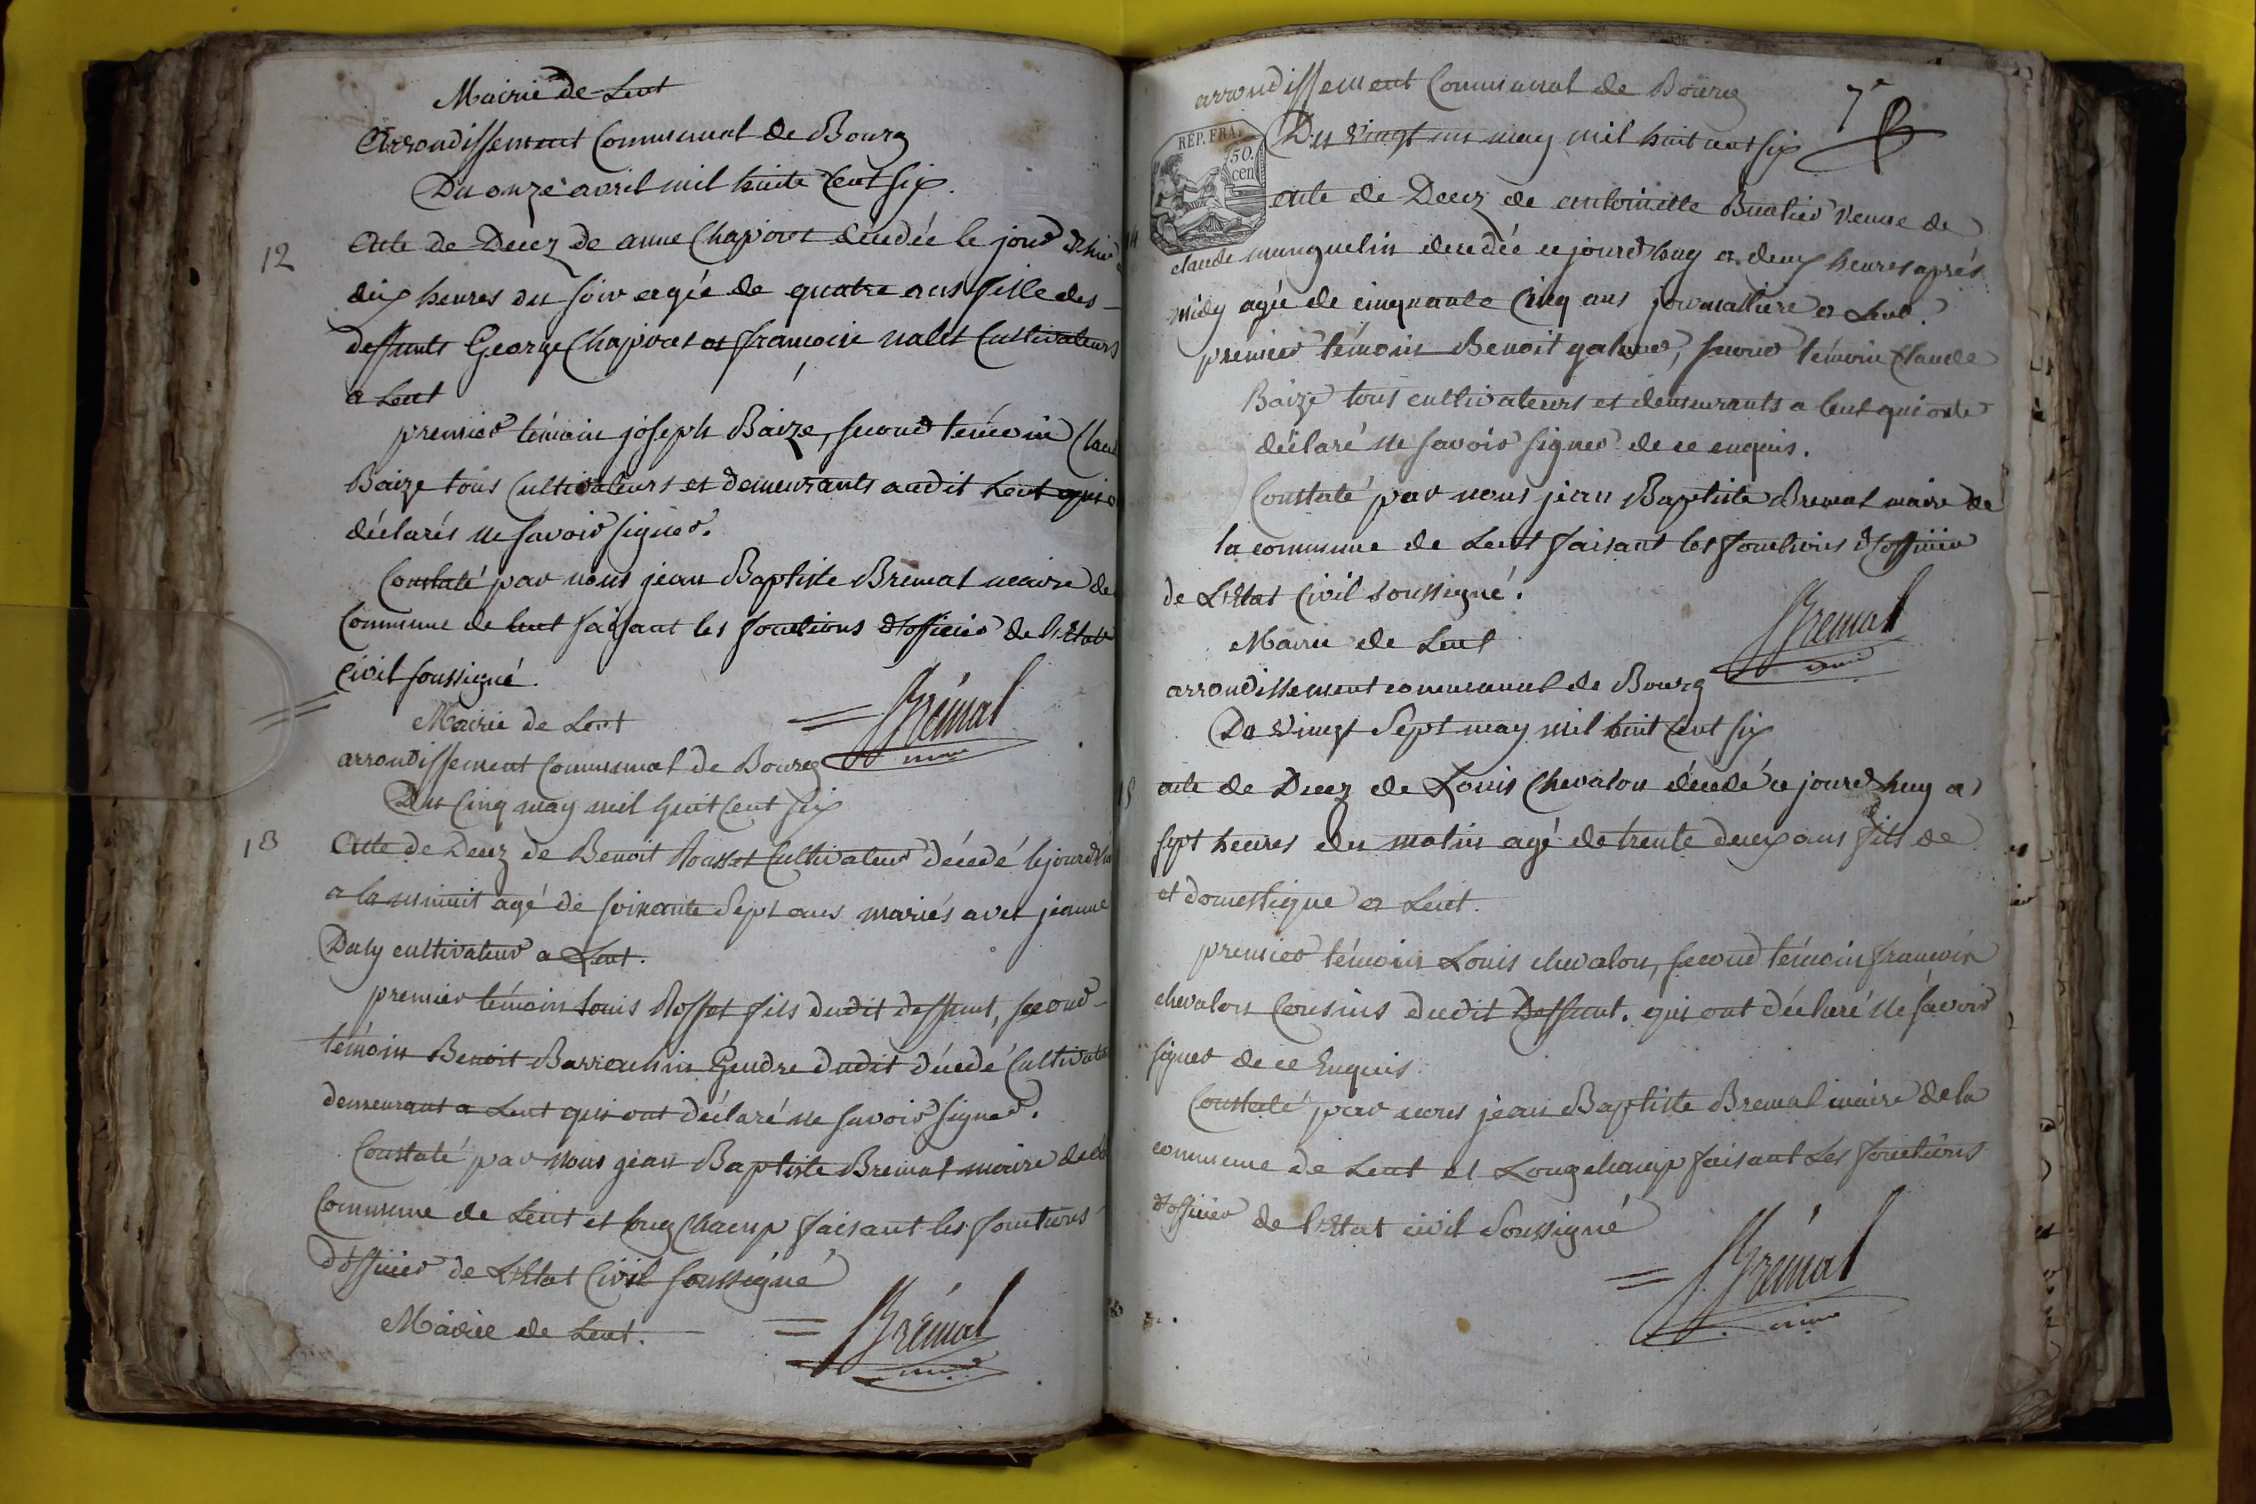 Mairie de Lent
Arrondissement Communal de Bourg
Du onze avril mil huite Cent six.
12
Acte de Decez de anne Chapous decedée le jour d'hier
dix heures du soir agée de quatre ans fille des
deffunts George Chapous et françoise nalet Cultivateurs
a Lent
premier témoin joseph Baize, second témoin Clau
Baize tous Cultivateurs et demeurants audit Lent qui o
déclarés ne savoir signer.
Constaté par nous jean Baptiste Bremal maire de
Commune de Lent faisant les fonctions d'officier de l'Etat
Civil soussigné.
Brémal
Mairie de Lent
arrondissement Communal de Bourg
Du Cinq may mil huit Cent six
13
Acte de Decez de Benoit Rousset Cultivateur décedé le jour d'
a la minuit agé de soixante Sept ans mariés avec jeanne
Daly cultivateur a Lent.
premier témoin Louis Rosset fils dudit deffunt, second
témoin Benoit Barrouchin Gendre dudit décedé Cultivat
demeurant a Lent qui ont déclaré ne savoir signer.
Constaté par nous jean Baptiste Bremal maire de
Commune de Lent et longchamp faisant les fonctions
d'officier de L'Etat Civil soussigné
Mairie de Lent.
Brémal
arrondissement Communal de Bourg
7e
REP. FRA.
50.
cen
Du vingt un may mil huit cent six
acte de Decez de antoinette Buatier veuve de
claude munquelin decedée ce jourd'huy a deux heures après
midy agée de cinquante Cinq ans journalliere a Lent.
premier témoin Benoit galner, second témoin Claude
Baize tous cultivateurs et demeurants a Lent qui onte
déclaré ne savoir signer de ce enquis.
Constaté par nous jean Baptiste Bremal maire de
la commune de Lent faisant les fonctions d'officier
de L'Etat Civil soussigné.
Brémal
Mairie de Lent
arrondissement communal de Bourg
Du vingt Sept may mil huit Cent six
acte de Decez de Louis Chevalon décedé ce jourd'huy a
sept heures du matin agé de trente deux ans fils de
et domestique a Lent.
premier témoin Louis chevalon, second témoin francois
chevalon Cousins dudit Deffunt. qui ont déclaré ne savoir
signer de ce Enquis.
Constaté par nous jean Baptiste Bremal maire de la
commune de Lent et Longchamp faisant Les fonctions
d'officier de l'Etat civil Soussigné
Brémal